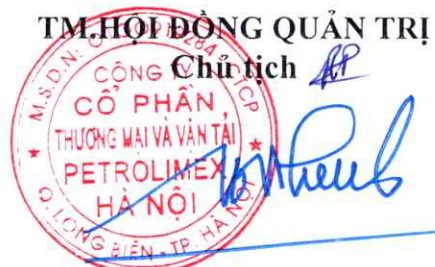 TM.HỘI ĐỒNG QUẢN TRỊ
Chủ tịch
CÔNG TY
CỔ PHẦN
THƯƠNG MẠI VÀ VẬN TẢI
PETROLIMEX
HÀ NỘI
Q.LONG BIÊN - TP. HÀ NỘI